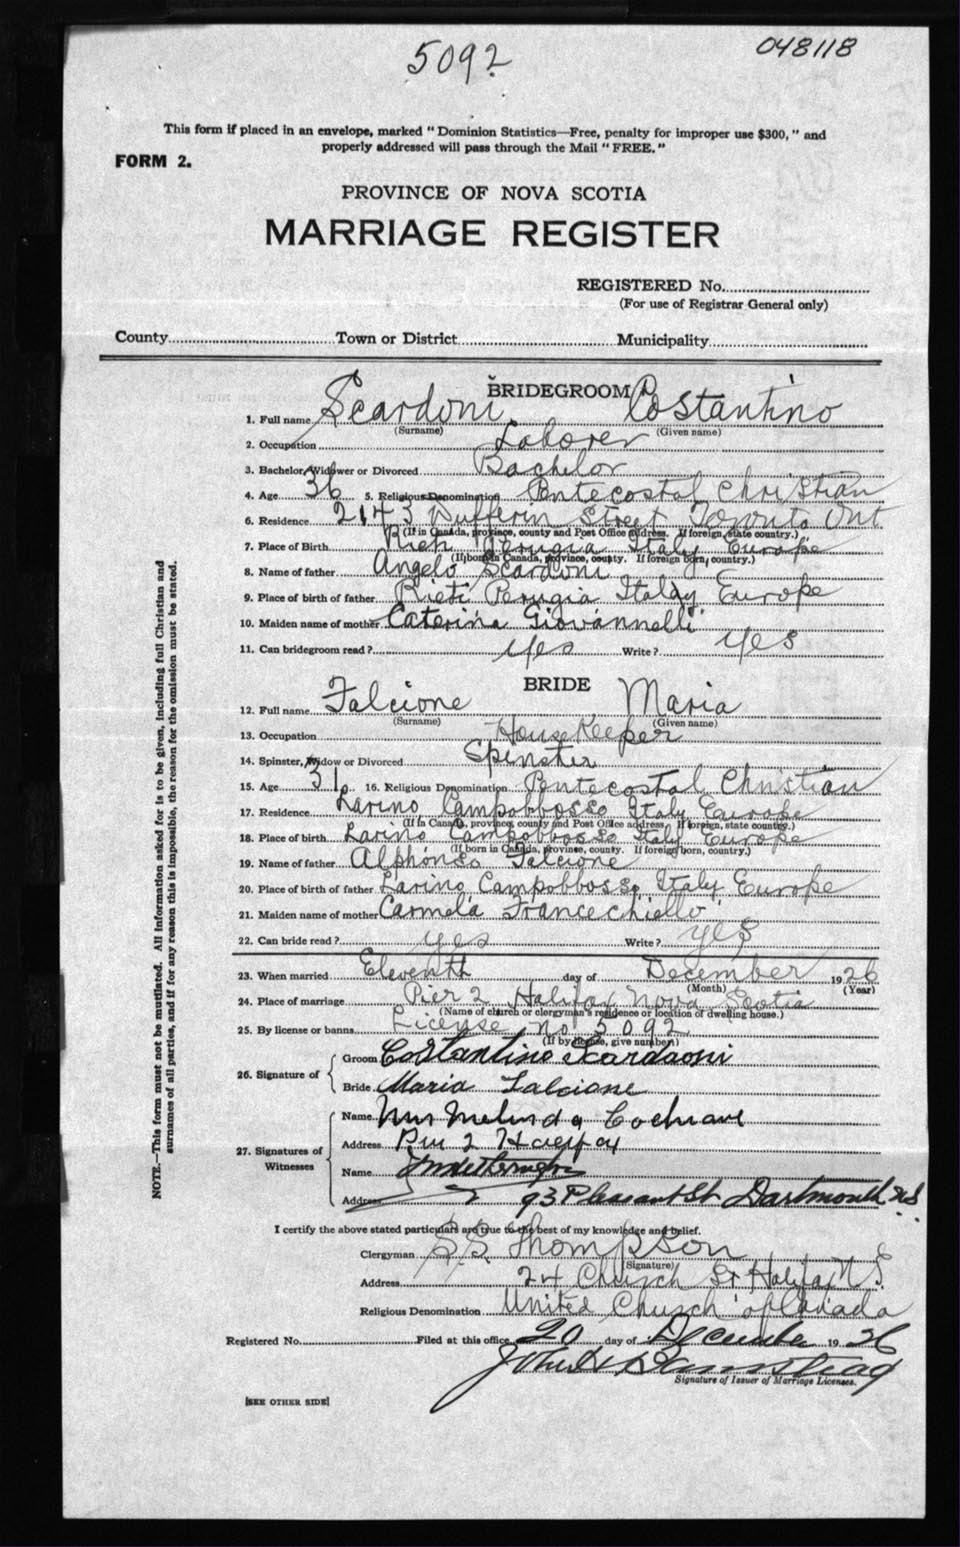 5092
048118
This form if placed in an envelope, marked "Dominion Statistics—Free, penalty for improper use $300," and
properly addressed will pass through the Mail "FREE."
FORM 2.
PROVINCE OF NOVA SCOTIA
MARRIAGE REGISTER
REGISTERED No.
(For use of Registrar General only)
County Town or District Municipality
BRIDEGROOM
1. Full name Scardoni Costantino
(Surname) (Given name)
2. Occupation Laborer
3. Bachelor, Widower or Divorced Bachelor
4. Age 36 5. Religious Denomination Pentecostal Christian
6. Residence 2143 Dufferin Street Toronto Ont
(If in Canada, province, county and Post Office address. If foreign, state country.)
7. Place of Birth Rieti Perugia Italy Europe
(If born in Canada, province, county. If foreign born, country.)
8. Name of father Angelo Scardoni
9. Place of birth of father Rieti Perugia Italay Europe
10. Maiden name of mother Caterina Giovannelli
11. Can bridegroom read? Yes Write? Yes
BRIDE
12. Full name Falcione Maria
(Surname) (Given name)
13. Occupation HouseKeeper
14. Spinster, Widow or Divorced Spinster
15. Age 31 16. Religious Denomination Pentecostal Christian
17. Residence Larino Campobbosso Italy Europe
(If in Canada, province, county and Post Office address. If foreign, state country.)
18. Place of birth Larino Campobbosso Italy Europe
(If born in Canada, province, county. If foreign born, country.)
19. Name of father Alphonso Falcione
20. Place of birth of father Larino Campobbosso Italy Europe
21. Maiden name of mother Carmela Francechiello
22. Can bride read? yes Write? yes
23. When married Eleventh day of December 1926
(Month) (Year)
24. Place of marriage Pier 2 Halifax Nova Scotia
(Name of church or clergyman's residence or location of dwelling house.)
25. By license or banns License no 5092
(If by license, give number)
26. Signature of Groom Costantino Scardaoni
Bride Maria Falcione
27. Signatures of Witnesses
Name Mrs Melinda Cochrane
Address Pier 2 Halifax
Name
Address 93 Pleasant St Dartmouth N.S.
I certify the above stated particulars are true to the best of my knowledge and belief.
Clergyman S.S. Thompson
(Signature)
Address 24 Church St Halifax N S
Religious Denomination United Church of Canada
Registered No. Filed at this office 20 day of December 1926
Signature of Issuer of Marriage Licenses.
[SEE OTHER SIDE]
NOTE.—This form must not be mutilated. All information asked for is to be given, including full Christian and
surnames of all parties, and if for any reason this is impossible, the reason for the omission must be stated.